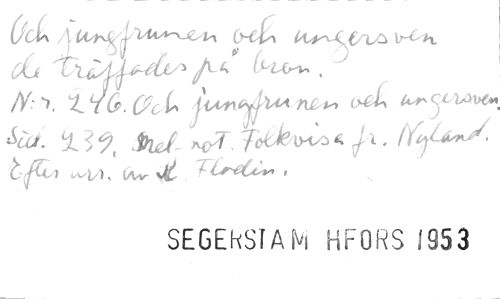 Och jungfrunen och ungersven
de träffades på bron.
N:r. 246. Och jungfrunen och ungersven.
Sid. 239. Mel. not. Folkvisa fr. Nyland.
Efter arr. av K. Flodin.
SEGERSTAM HFORS 1953